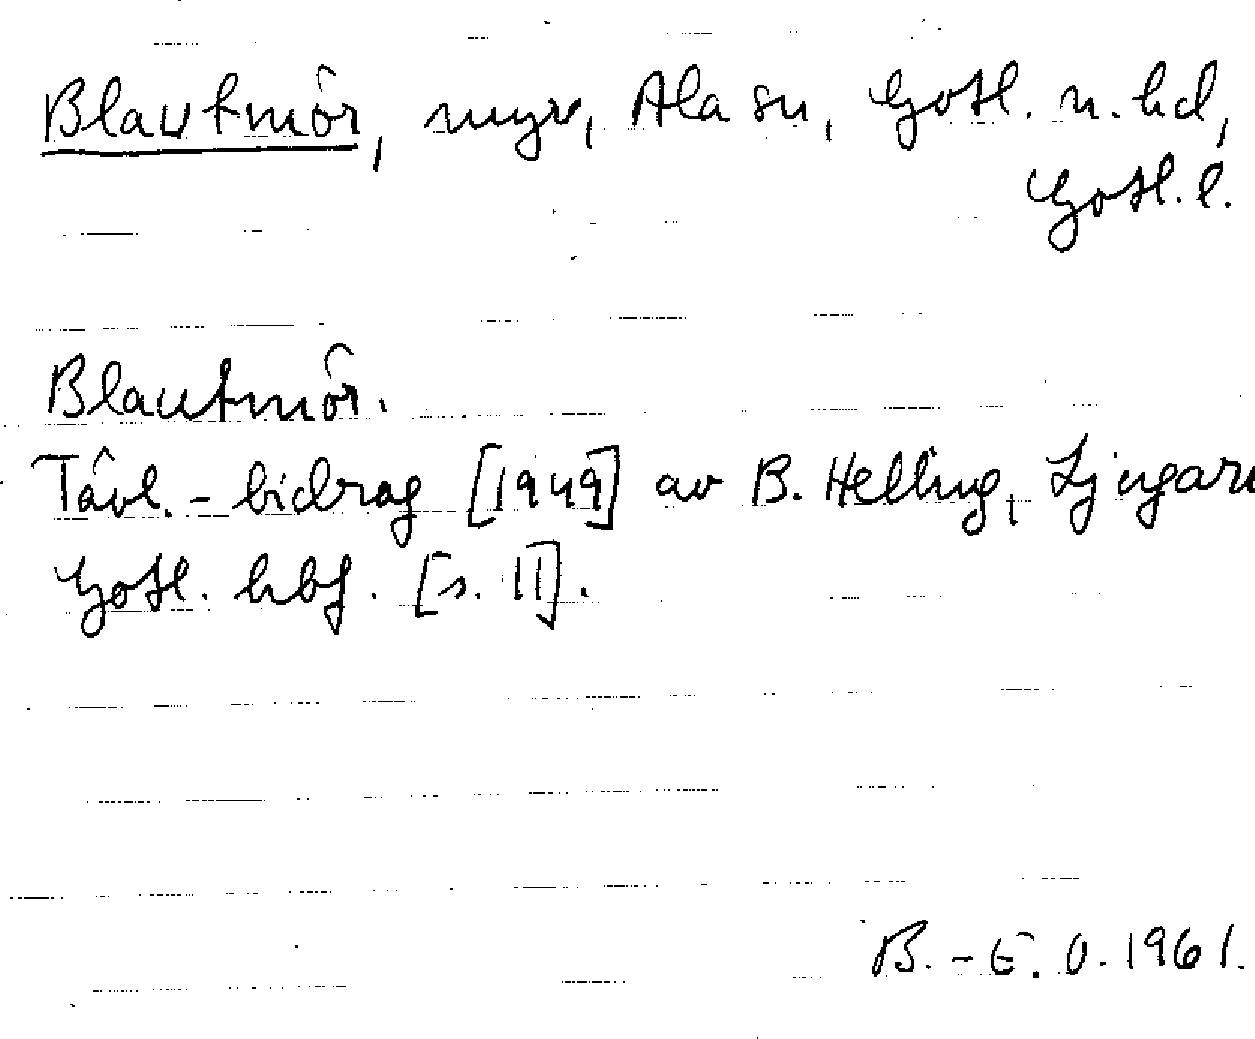 Blautmör, myr, Ala sn, Gotl. n. hd,
Gotl. l.
Blautmör.
Tävl.-bidrag [1949] av B. Helling, Ljugarn
Gotl. hbf. [s. 11].
B.-E. O. 1961.